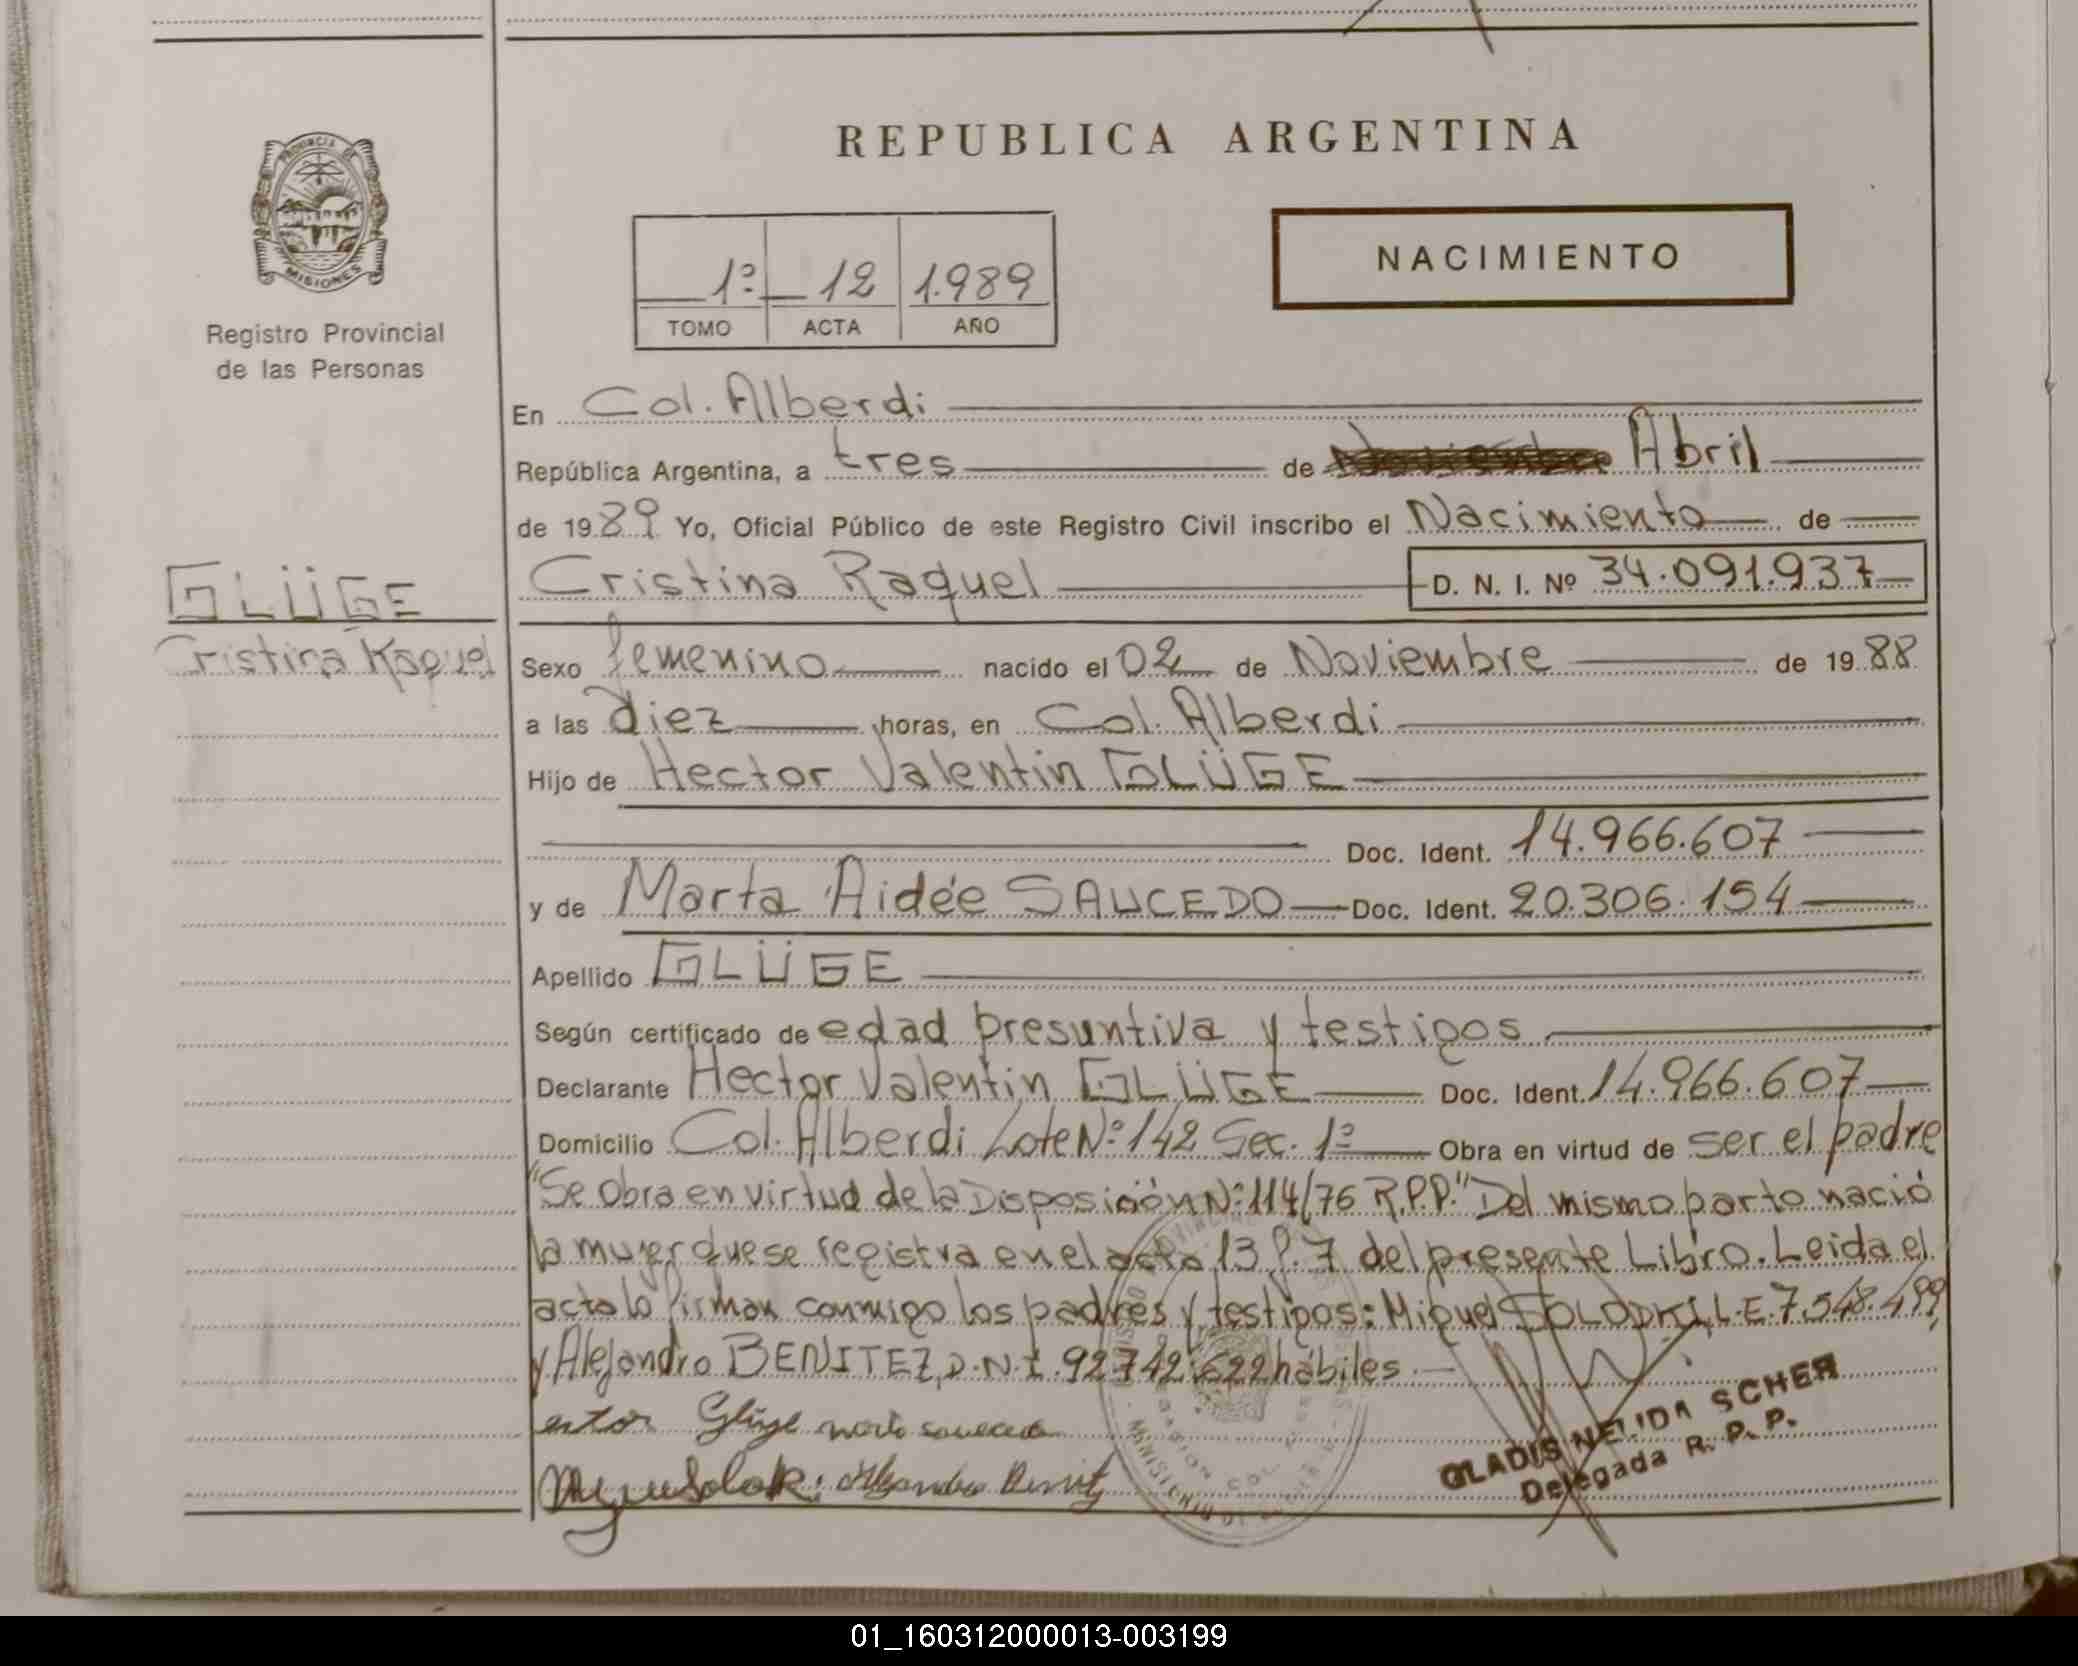 PROVINCIA DE
MISIONES
Registro Provincial
de las Personas
REPUBLICA ARGENTINA
1º 12 1.989
TOMO ACTA AÑO
NACIMIENTO
En Col. Alberdi
República Argentina, a tres de Abril
de 1989 Yo, Oficial Público de este Registro Civil inscribo el Nacimiento de
GLÜGE
Cristina Raquel D. N. I. Nº 34.091.937
Cristina Raquel
Sexo femenino nacido el 02 de Noviembre de 1988
a las diez horas, en Col. Alberdi
Hijo de Hector Valentin GLÜGE
Doc. Ident. 14.966.607
y de Marta Aidée SAUCEDO Doc. Ident. 20.306.154
Apellido GLÜGE
Según certificado de edad presuntiva y testigos
Declarante Hector Valentin GLÜGE Doc. Ident. 14.966.607
Domicilio Col. Alberdi Lote Nº 142 Sec. 1º Obra en virtud de ser el padre
"Se obra en virtud de la Disposición Nº 114/76 R.P.P." Del mismo parto nació
la mujer que se registra en el acta 13 f. 7 del presente Libro. Leida el
acta lo firman conmigo los padres y testigos: Miguel L.E. 7.548.499
y Alejandro BENITEZ, D.N.I. 92.742.622 hábiles
Glüge
GLADIS NELIDA SCHER
Delegada R. P. P.
01_160312000013-003199